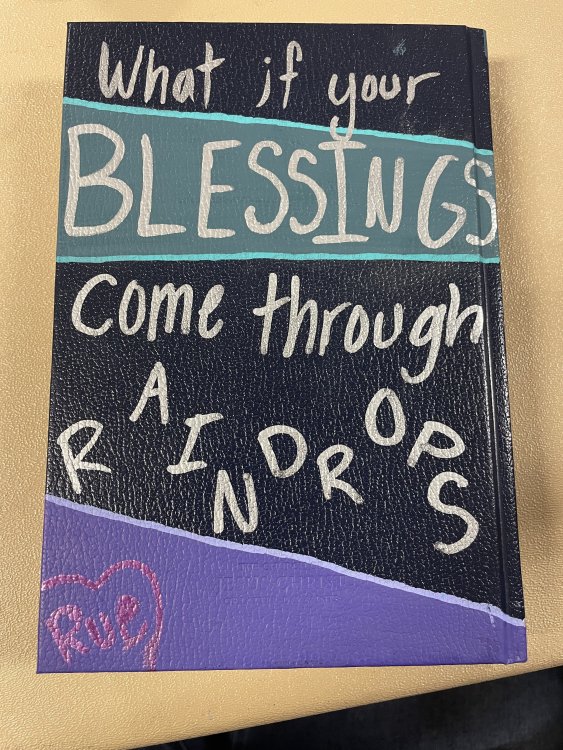 What if your
BLESSINGS
Come through
RAINDROPS
RUE